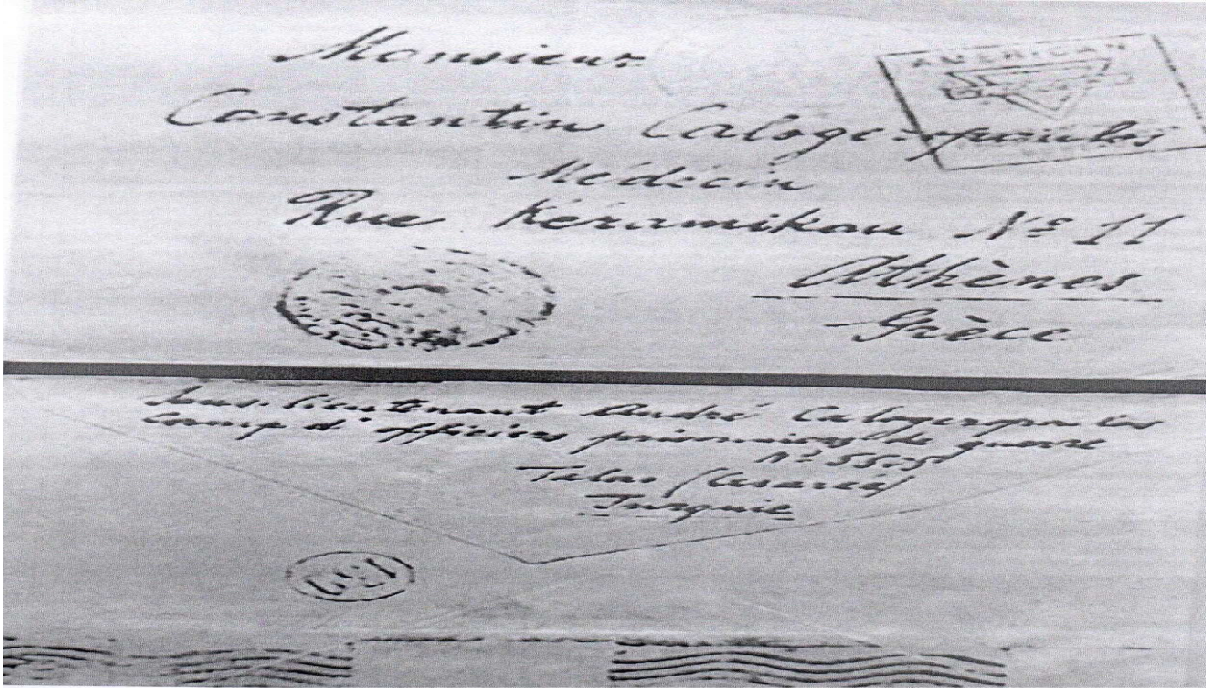 Monsieur
AMERICAN
Constantin Calogeropoulos
Médecin
Rue Kéramikou Nº 11
Athènes
Grèce
Sous-lieutenant André Calogeropoulos
Camp d'officiers prisonniers de guerre
Nº 5555
Talas (Cesarée)
Turquie